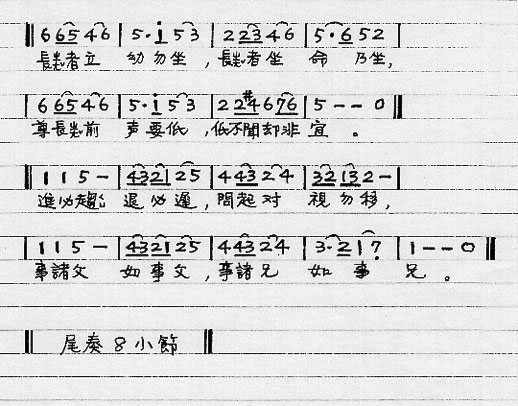 ‖ 6 65 4 6 | 5· i 5 3 | 2 23 4 6 | 5· 6 5 2 |
長者立 幼勿坐，長者坐 命 乃坐，
| 6 65 4 6 | 5· i 5 3 | 2 2#4 6 76 | 5 – – 0 ‖
尊長前 声要低，低不聞却非 宜 。
‖ 1 1 5 – | 4321 25 | 4 43 2 4 | 32 132 – |
進必趨 退必遲，問起对 視勿移，
| 1 1 5 – | 4321 25 | 4 43 2 4 | 3· 2 1 7̣ | 1 – – 0 ‖
事諸父 如事父，事諸兄 如 事 兄 。
‖ 尾奏 8 小節 ‖